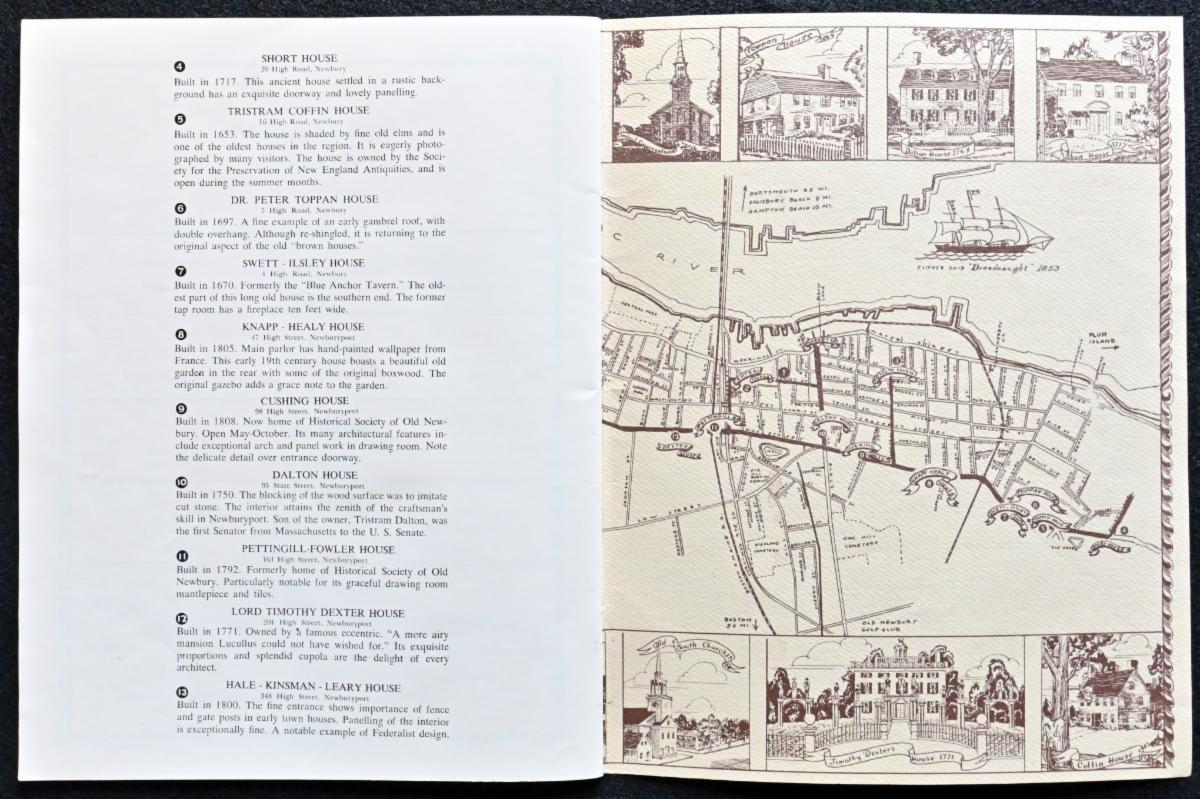 4
SHORT HOUSE
39 High Road, Newbury
Built in 1717. This ancient house settled in a rustic back-
ground has an exquisite doorway and lovely panelling.
5
TRISTRAM COFFIN HOUSE
16 High Road, Newbury
Built in 1653. The house is shaded by fine old elms and is
one of the oldest houses in the region. It is eagerly photo-
graphed by many visitors. The house is owned by the Soci-
ety for the Preservation of New England Antiquities, and is
open during the summer months.
6
DR. PETER TOPPAN HOUSE
5 High Road, Newbury
Built in 1697. A fine example of an early gambrel roof, with
double overhang. Although re-shingled, it is returning to the
original aspect of the old "brown houses."
7
SWETT - ILSLEY HOUSE
4 High Road, Newbury
Built in 1670. Formerly the "Blue Anchor Tavern." The old-
est part of this long old house is the southern end. The former
tap room has a fireplace ten feet wide.
8
KNAPP - HEALY HOUSE
47 High Street, Newburyport
Built in 1805. Main parlor has hand-painted wallpaper from
France. This early 19th century house boasts a beautiful old
garden in the rear with some of the original boxwood. The
original gazebo adds a grace note to the garden.
9
CUSHING HOUSE
98 High Street, Newburyport
Built in 1808. Now home of Historical Society of Old New-
bury. Open May-October. Its many architectural features in-
clude exceptional arch and panel work in drawing room. Note
the delicate detail over entrance doorway.
10
DALTON HOUSE
95 State Street, Newburyport
Built in 1750. The blocking of the wood surface was to imitate
cut stone. The interior attains the zenith of the craftsman's
skill in Newburyport. Son of the owner, Tristram Dalton, was
the first Senator from Massachusetts to the U. S. Senate.
11
PETTINGILL-FOWLER HOUSE
164 High Street, Newburyport
Built in 1792. Formerly home of Historical Society of Old
Newbury. Particularly notable for its graceful drawing room
mantlepiece and tiles.
12
LORD TIMOTHY DEXTER HOUSE
201 High Street, Newburyport
Built in 1771. Owned by a famous eccentric. "A more airy
mansion Lucullus could not have wished for." Its exquisite
proportions and splendid cupola are the delight of every
architect.
13
HALE - KINSMAN - LEARY HOUSE
348 High Street, Newburyport
Built in 1800. The fine entrance shows importance of fence
and gate posts in early town houses. Panelling of the interior
is exceptionally fine. A notable example of Federalist design.
Toppan House
Dalton House
Short House 1717
PORTSMOUTH 22 MI.
SALISBURY BEACH 5 MI.
HAMPTON BEACH 10 MI.
C
RIVER
CLIPPER SHIP "Dreadnought" 1853
PLUM
ISLAND
LOW STREET
HIGHLAND
CEMETERY
OAK HILL
CEMETERY
BOSTON
36 MI.
OLD NEWBURY
GOLF CLUB
Old South Church
Timothy Dexter's House 1771
Coffin House